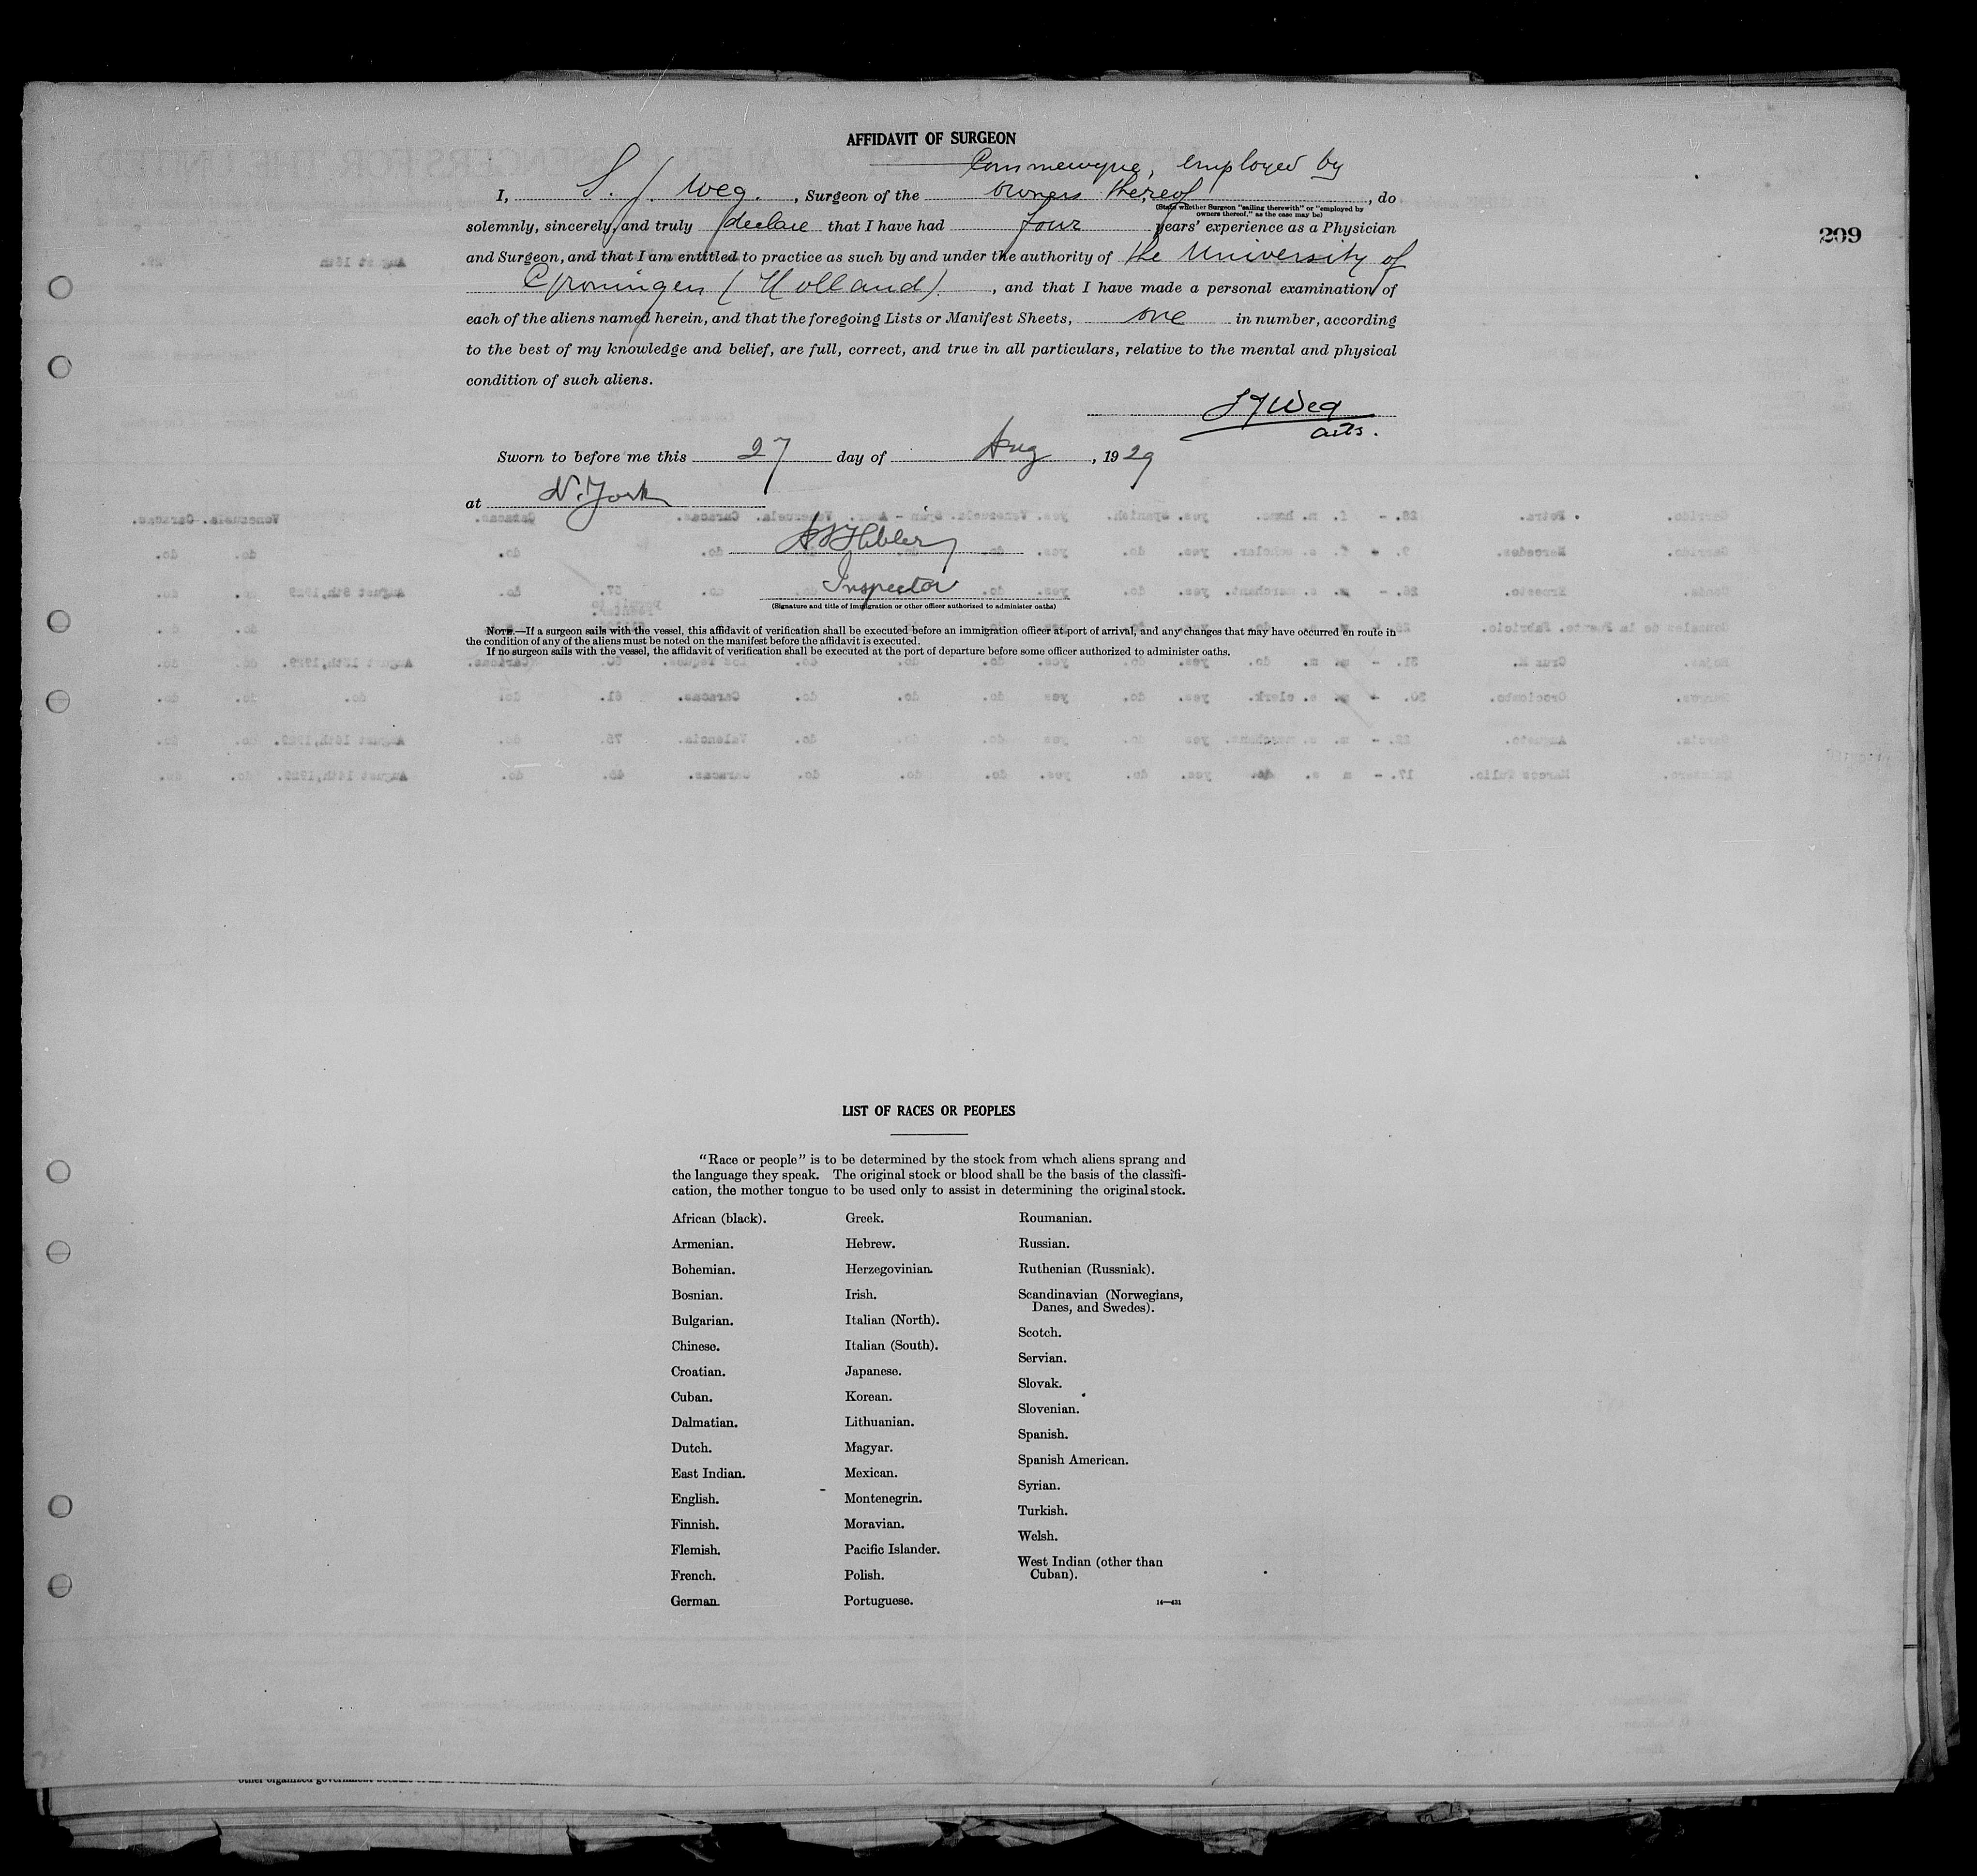 AFFIDAVIT OF SURGEON
Commewyne, employed by
I, S. J. Weg., Surgeon of the owners thereof, do
(State whether Surgeon "sailing therewith" or "employed by
owners thereof," as the case may be)
209
solemnly, sincerely, and truly declare that I have had four years' experience as a Physician
and Surgeon, and that I am entitled to practice as such by and under the authority of the University of
Groningen (Holland)., and that I have made a personal examination of
each of the aliens named herein, and that the foregoing Lists or Manifest Sheets, one in number, according
to the best of my knowledge and belief, are full, correct, and true in all particulars, relative to the mental and physical
condition of such aliens.
SJ Weg
arts.
Sworn to before me this 27 day of Aug, 1929
at N. York
Inspector
(Signature and title of immigration or other officer authorized to administer oaths)
NOTE.—If a surgeon sails with the vessel, this affidavit of verification shall be executed before an immigration officer at port of arrival, and any changes that may have occurred en route in
the condition of any of the aliens must be noted on the manifest before the affidavit is executed.
If no surgeon sails with the vessel, the affidavit of verification shall be executed at the port of departure before some officer authorized to administer oaths.
LIST OF RACES OR PEOPLES
"Race or people" is to be determined by the stock from which aliens sprang and
the language they speak. The original stock or blood shall be the basis of the classifi-
cation, the mother tongue to be used only to assist in determining the original stock.
African (black).
Armenian.
Bohemian.
Bosnian.
Bulgarian.
Chinese.
Croatian.
Cuban.
Dalmatian.
Dutch.
East Indian.
English.
Finnish.
Flemish.
French.
German.
Greek.
Hebrew.
Herzegovinian.
Irish.
Italian (North).
Italian (South).
Japanese.
Korean.
Lithuanian.
Magyar.
Mexican.
Montenegrin.
Moravian.
Pacific Islander.
Polish.
Portuguese.
Roumanian.
Russian.
Ruthenian (Russniak).
Scandinavian (Norwegians,
Danes, and Swedes).
Scotch.
Servian.
Slovak.
Slovenian.
Spanish.
Spanish American.
Syrian.
Turkish.
Welsh.
West Indian (other than
Cuban).
16—431